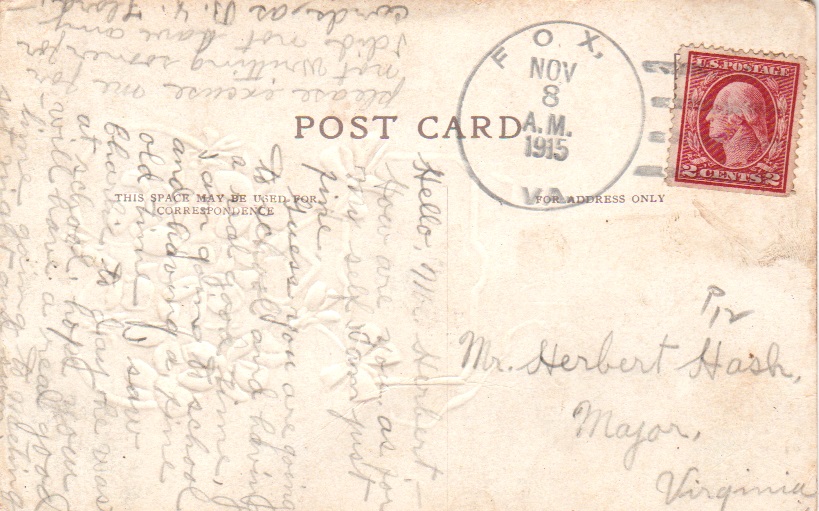 POST CARD
THIS SPACE MAY BE USED FOR
CORRESPONDENCE
FOR ADDRESS ONLY
FOX,
NOV
8
A.M.
1915
VA.
U.S. POSTAGE
2 CENTS 2
Mr. Herbert Hash,
Major,
Virginia
Hello, Mr. Herbert
How are you as for
my self I am just
fine.
I Guess you are going
to school and having
a real good time, I
am going to school
and having a fine
old time. I saw
to day he was
at school, hope you
will have a real good
time going to meeting
at night and
please excuse me for
not writting sooner for
I did not have any
cards, as